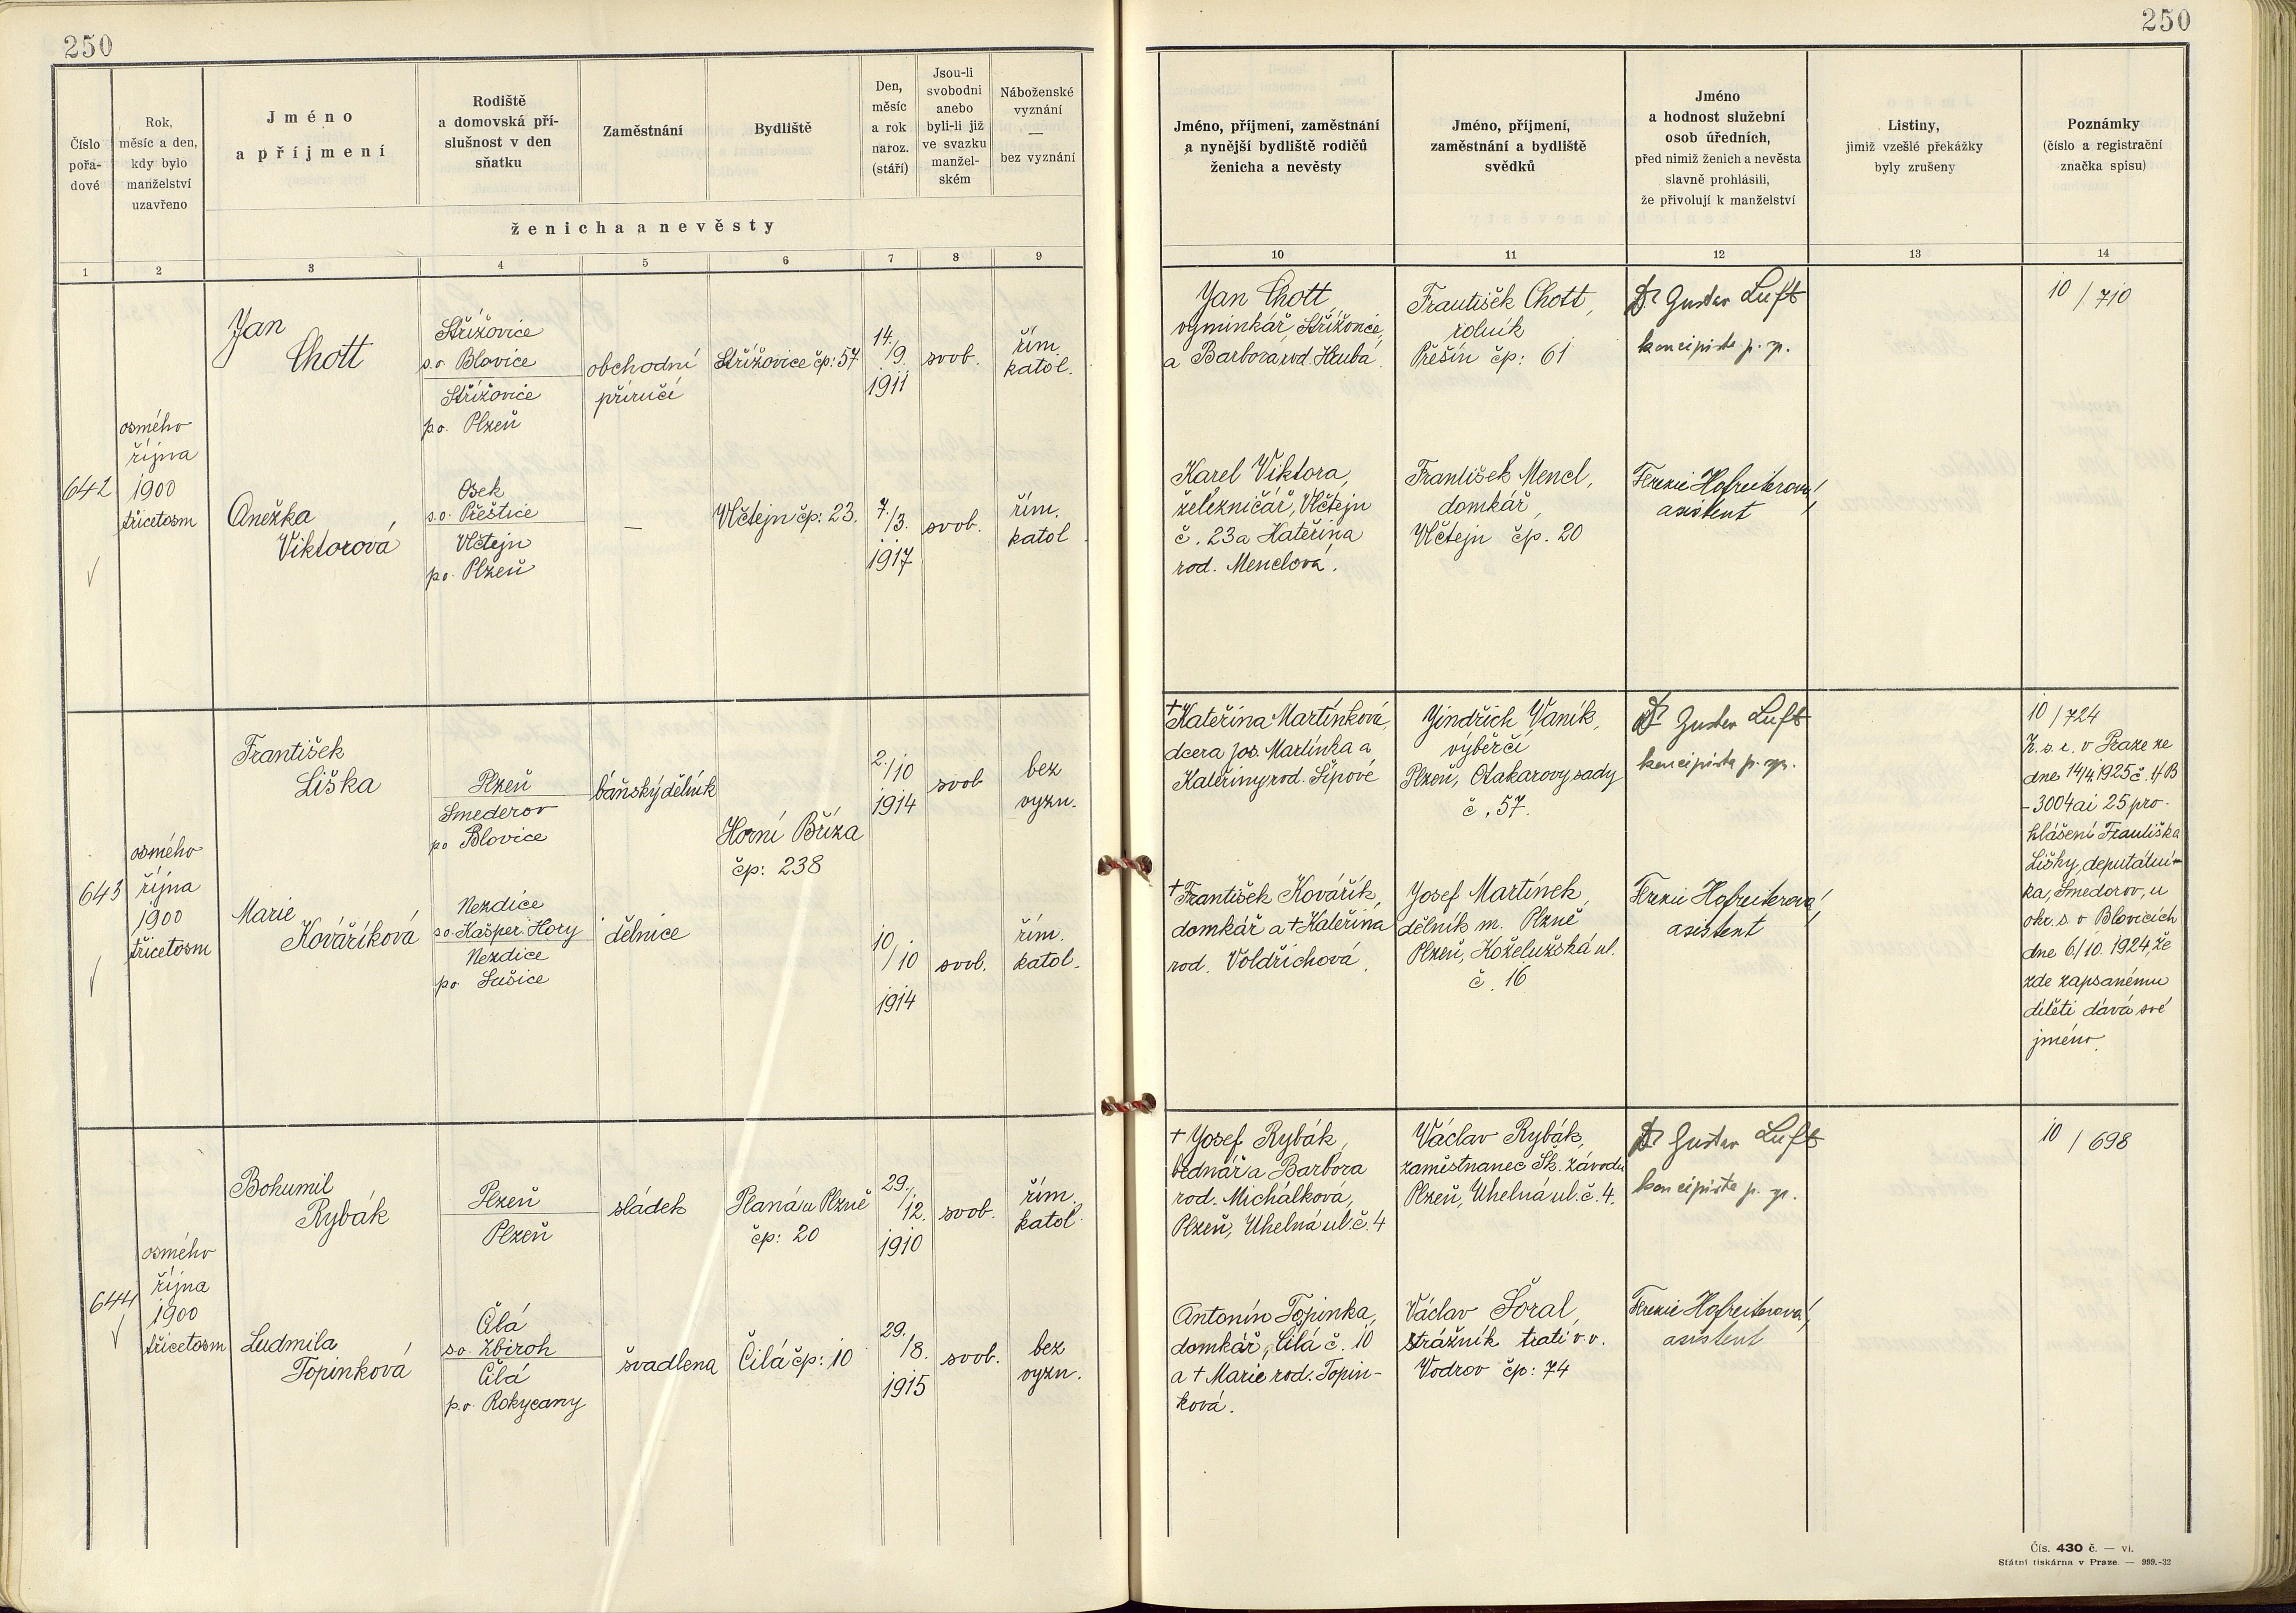 250
250
Číslo
pořa-
dové
Rok,
měsíc a den,
kdy bylo
manželství
uzavřeno
Jméno
a příjmení
Rodiště
a domovská pří-
slušnost v den
sňatku
Zaměstnání
Bydliště
Den,
měsíc
a rok
naroz.
(stáří)
Jsou-li
svobodni
anebo
byli-li již
ve svazku
manžel-
ském
Náboženské
vyznání
—
bez vyznání
ženicha a nevěsty
Jméno, příjmení, zaměstnání
a nynější bydliště rodičů
ženicha a nevěsty
Jméno, příjmení,
zaměstnání a bydliště
svědků
Jméno
a hodnost služební
osob úředních,
před nimiž ženich a nevěsta
slavně prohlásili,
že přivolují k manželství
Listiny,
jimiž vzešlé překážky
byly zrušeny
Poznámky
(číslo a registrační
značka spisu)
1 2 3 4 5 6 7 8 9 10 11 12 13 14
642
osmého
října
1900
třicetosm
Jan
Chott
Střížovice
s.o. Blovice
Střížovice
p.o. Plzeň
obchodní
příručí
Střížovice čp: 57
14./9.
1911
svob.
řím.
katol.
Jan Chott,
výminkář Střížovice,
a Barbora rod. Hrubá.
František Chott,
rolník
Přešín čp: 61
Dr Gustav Luft
koncipista p. sp.
10/710
Anežka
Viktorová
Osek
s.o. Přeštice
Vlčtejn
p.o. Plzeň
—
Vlčtejn čp: 23.
7./3.
1917
svob.
řím.
katol
Karel Viktora,
železničář, Vlčtejn
č. 23 a Kateřina
rod. Menclová.
František Mencl,
domkář,
Vlčtejn čp. 20
Terezie Hofreiterová,
asistent
643
osmého
října
1900
třicetosm
František
Liška
Plzeň
Smederov
po Blovice
báňský dělník
Horní Bříza
čp: 238
2./10
1914
svob
bez
vyzn.
†Kateřina Martínková,
dcera jos. Martínka a
Kateřiny rod. Šípové
Jindřich Vaník,
výběrčí
Plzeň, Otakarovy sady
č. 57.
Dr Gustav Luft
koncipista p. sp.
10/724
Z. s. c. v Praze ze
dne 14/4 1925 č. 4B
- 3004 ai 25 pro-
hlášení Františka
Lišky, deputátní-
ka, Smedorov, u
okr. s. v Blovicích
dne 6/10. 1924, že
zde zapsanému
dítěti dává své
jméno.
Marie
Kováříková
Nezdice
s.o. Kašper. Hory
Nezdice
p.o. Sušice
dělnice
10./10
1914
svob.
řím.
katol.
†František Kovářík,
domkář a † Kateřina
rod. Voldřichová.
Josef Martínek,
dělník m. Plzně
Plzeň, Koželužská ul.
č. 16
Terezie Hofreiterová,
asistent
644
osmého
října
1900
třicetosm
Bohumil
Rybák
Plzeň
Plzeň
sládek
Planá u Plzně
čp: 20
29./12.
1910
svob.
řím.
katol.
† Josef Rybák,
bednář a Barbora
rod. Michálková,
Plzeň, Uhelná ul. č. 4
Václav Rybák,
zaměstnanec Šk. závodů
Plzeň, Uhelná ul. č. 4.
Dr Gustav Luft
koncipista p. sp.
10/698
Ludmila
Topinková
Čilá
s.o. Zbiroh
Čilá
p.o. Rokycany
švadlena
Čilá čp: 10
29./8.
1915
svob.
bez
vyzn.
Antonín Topinka,
domkář, Čilá č. 10
a † Marie rod. Topin-
ková.
Václav Šoral,
strážník trati v. v.
Vodrov čp: 74
Terezie Hofreiterová,
asistent
Čís. 430 č. — vi.
Státní tiskárna v Praze. — 999.-32